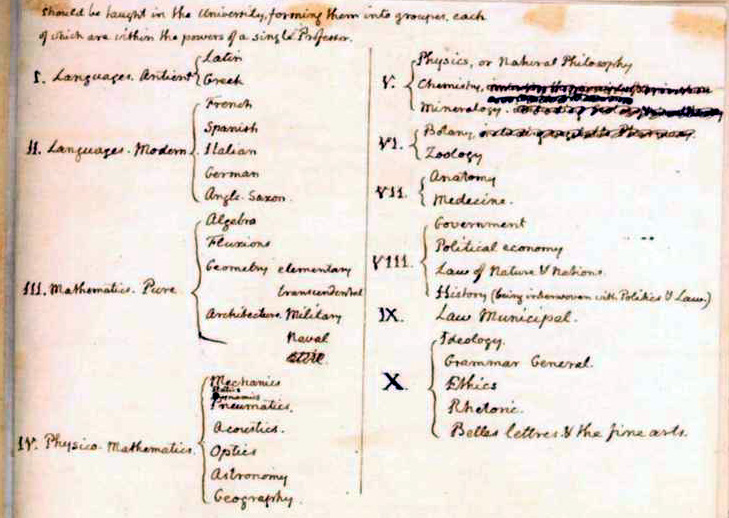 should be taught in the University, forming them into groupes, each
of which are within the powers of a single Professor.
I. Languages. Antient
Latin
Greek
II. Languages. Modern
French
Spanish
Italian
German
Anglo-Saxon.
III. Mathematics. Pure
Algebra
Fluxions
Geometry elementary
transcendental
Architecture. Military
Naval
IV. Physico-Mathematics.
Mechanics
Statics
Dynamics
Pneumatics.
Acoustics.
Optics
Astronomy
Geography.
V.
Physics, or Natural Philosophy
Chemistry,
Mineralogy.
VI.
Botany,
Zoology
VII.
Anatomy
Medecine.
VIII.
Government
Political economy
Law of Nature & Nations.
History (being interwoven with Politics & Law.)
IX. Law Municipal.
X.
Ideology.
Grammar General.
Ethics
Rhetoric.
Belles lettres & the fine arts.